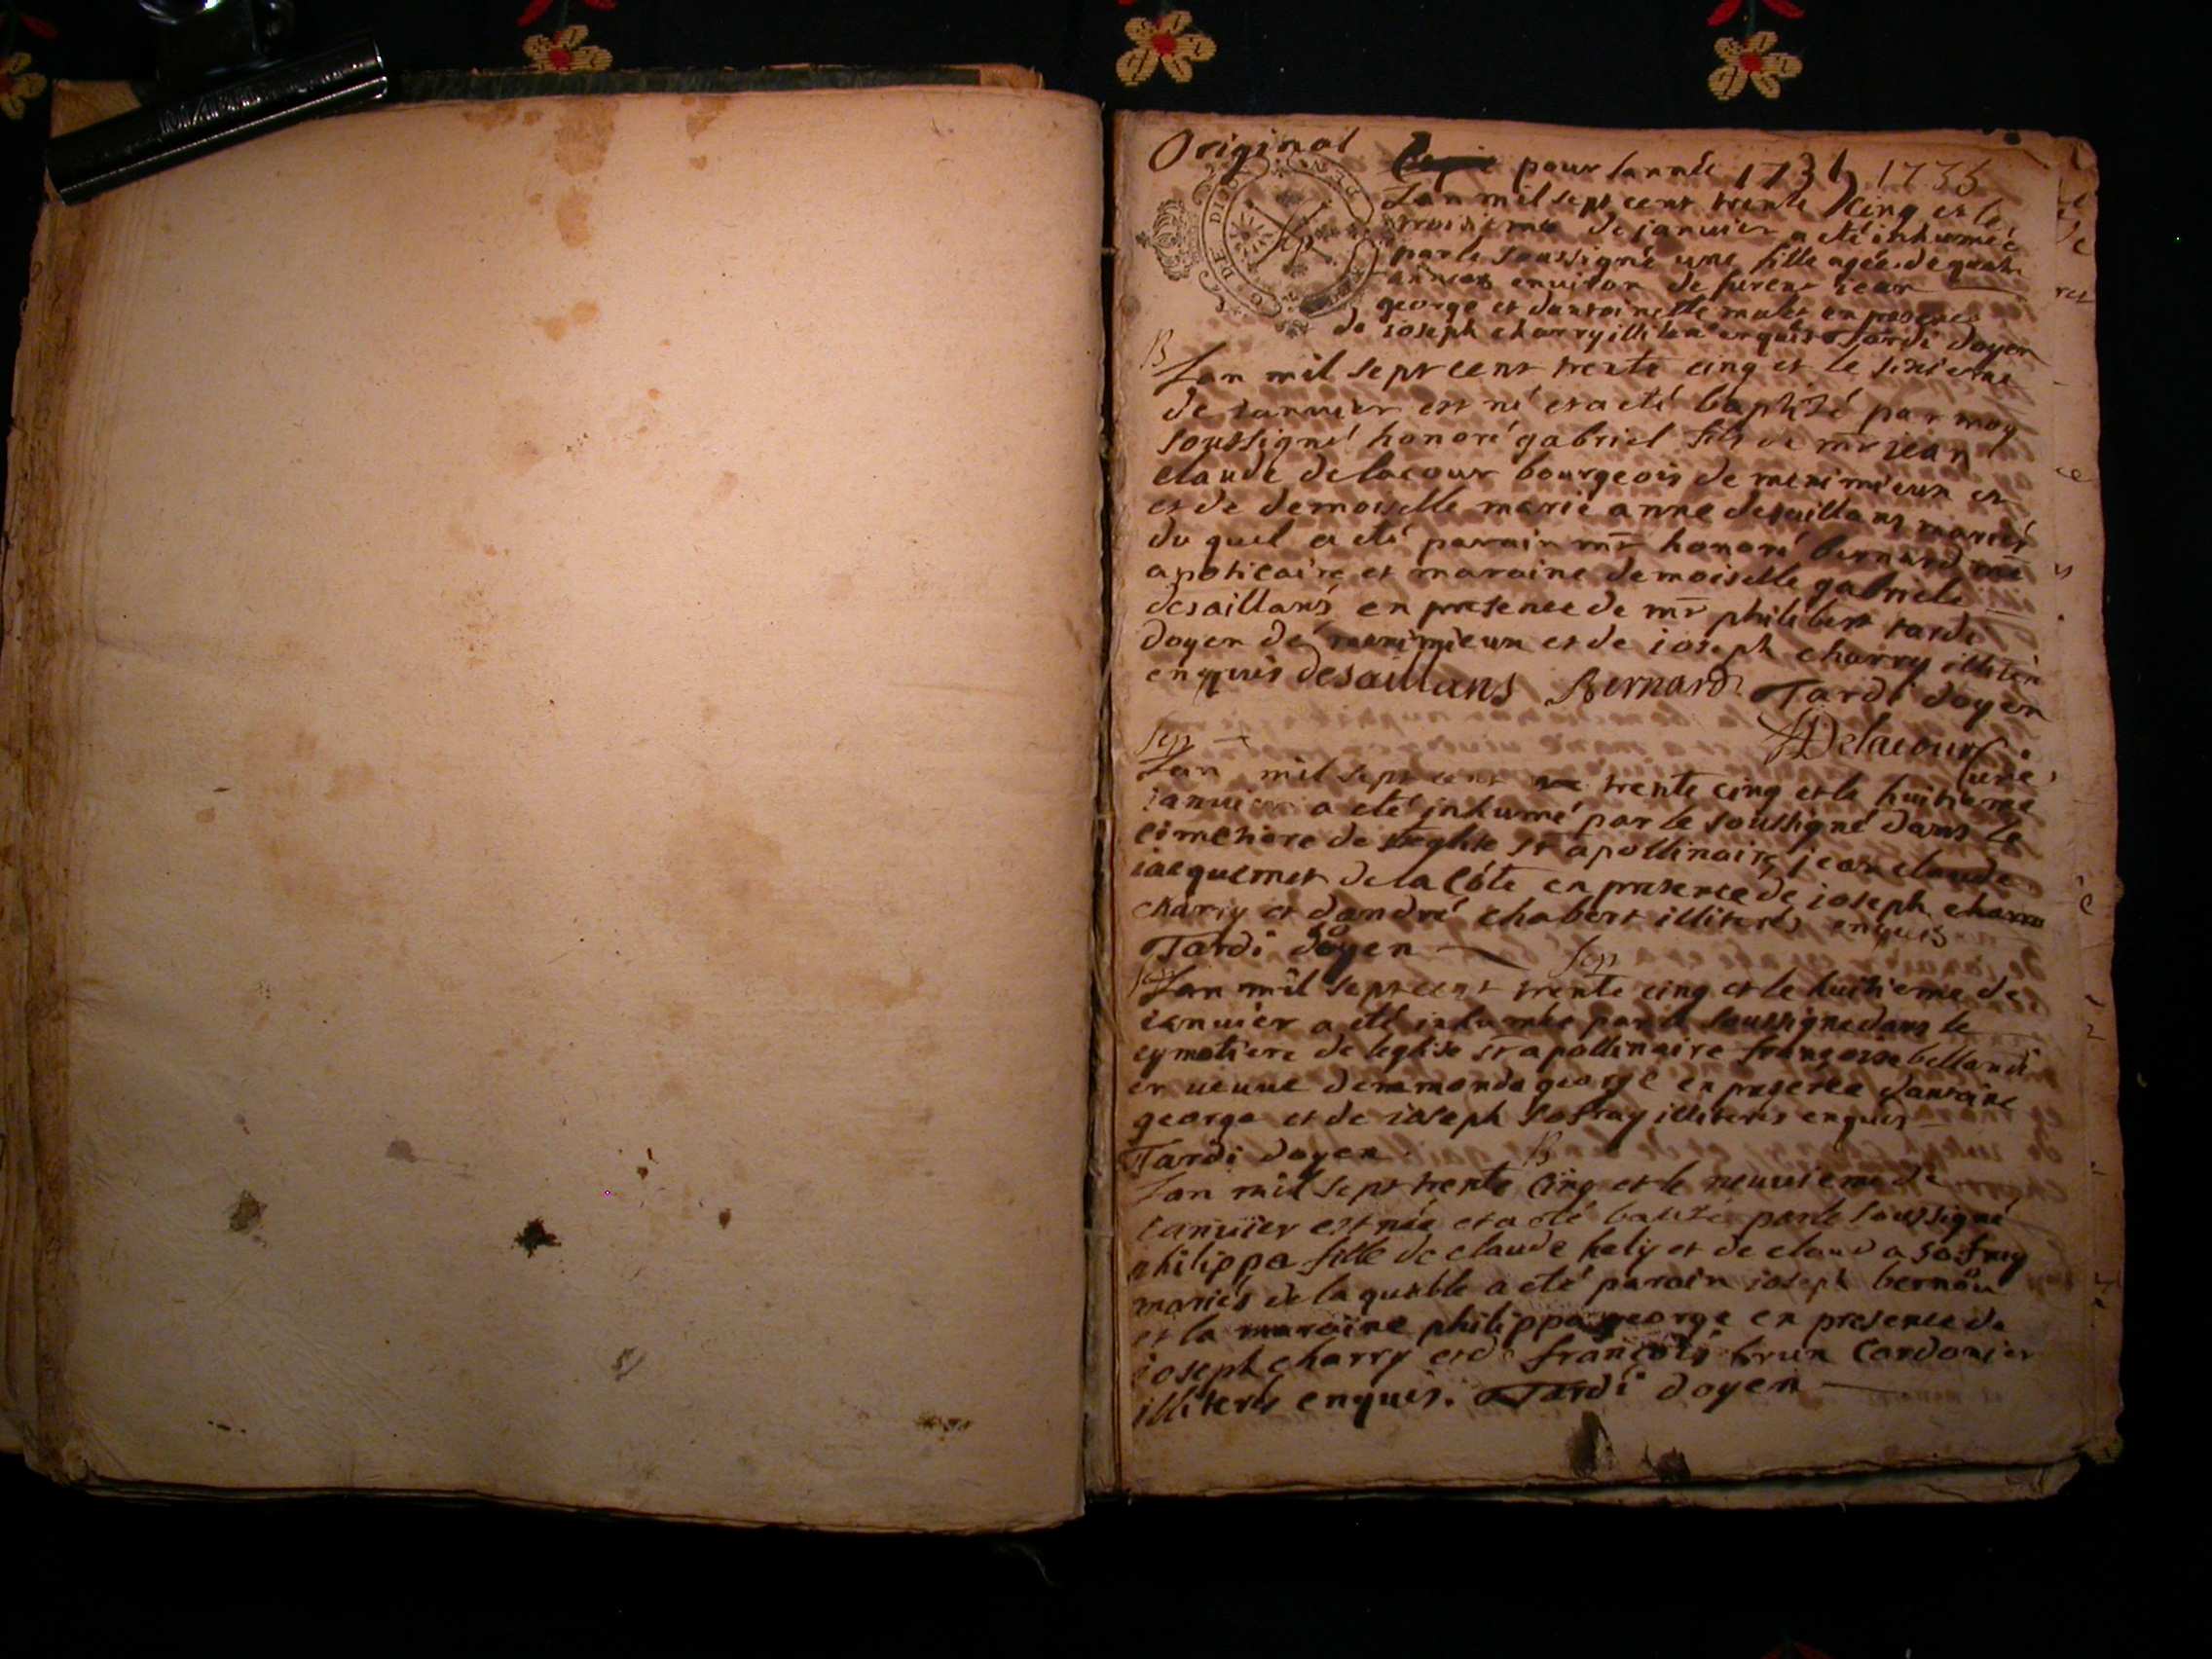 Original Copie pour lannée 1731 1735
Lan mil sept cent trente cinq et le
troisieme de janvier a eté inhumée
par le soussigné une fille agée de quatre
années environ de furent iean
george et dantoinette mulet en presence
de ioseph charry illiteré enquis Tardi doyen
B
Lan mil sept cent trente cinq et le sixieme
de ianvier est né et a eté baptizé par moy
soussigné honoré gabriel fils de mr iean
claude delacour bourgeois de meximieux et
et de demoiselle marie anne desaillans mariés
du quel a eté parain mr honoré bernard me
apoticaire et maraine demoiselle gabriele
desaillans en presence de mr philibert tardi
doyen de meximieux et de ioseph charry illiteré
enquis desaillans Bernard Tardi doyen
Delacour
Sep
Lan mil sept cent trente cinq et le huitieme
ianvier a eté inhumé par le soussigné dans le
cimetiere de leglise st apollinaire jean claude
iacquemet de la Côte en presence de ioseph
charry et dandré chabert illiterés enquis
Tardi doyen
Sep
Lan mil sept cent trente cinq et le huitieme de
ianvier a eté inhumée par le soussigné dans le
cymetiere de leglise st apollinaire françoise belland
et veuve demmonde george en presence dantoine
george et de ioseph sofray illiterés enquis
Tardi doyen
B
Lan mil sept trente cinq et le neuvieme de
ianvier est née et a eté batizé par le soussigné
philippa fille de claude hely et de clauda sofray
mariés de la quelle a eté parain ioseph bernou
et la maraine philippa george en presence de
ioseph charry et de françois brun Cordonier
illiterés enquis. Tardi doyen